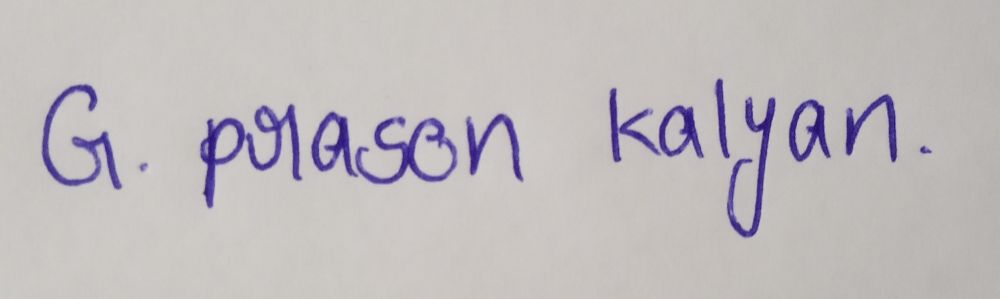 G. prason kalyan.